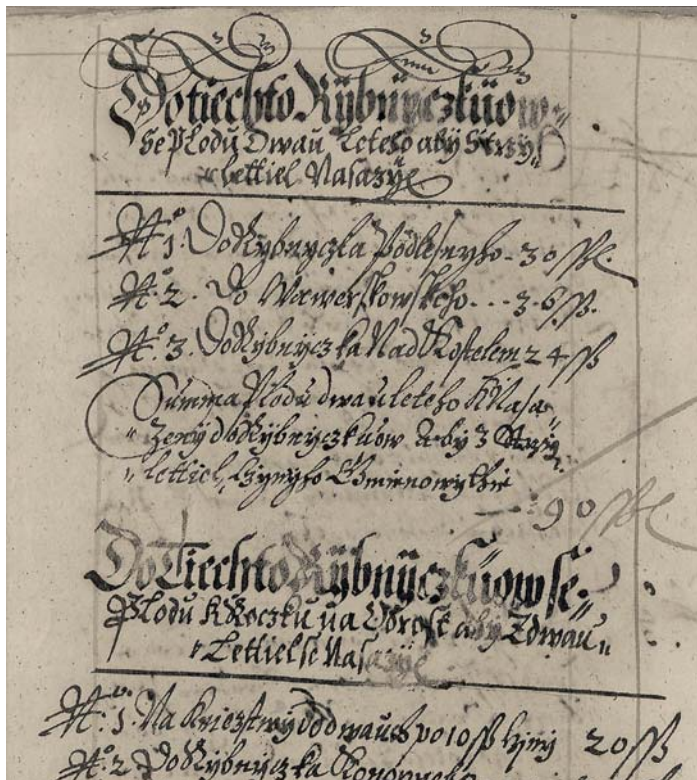 Do tiechto Rÿbnÿczkuow
se Plodu Dwau Leteho abÿ Strzÿ
lettiel Nasazÿl
No 1. Do Rybnyczka Podlesnyho - 30 ßk.
No 2. Do Wawerskowskeho - - - 36 ß.
No 3. Do Rybnyczka Nad Kostelem 24 ß
Summa Plodu dwauleteho K Nasa
zenÿ do Rybnyczkuow aby 3 Strzÿ
lettiel, Czynyho
90
Do Tiechto Rÿbnÿczkuow se
Plodu K Roczku na aby Z dwau
Lettiel se Nasazÿl
No 1. Na po 10 ß Czyny 20 ß
No 2 Do Rybnyczka